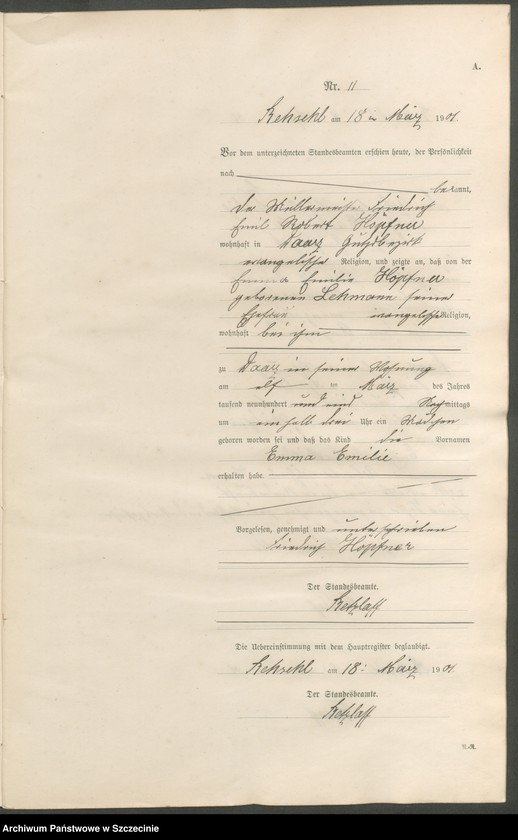 A.
Nr. 11
Rehsehl am 18ten März 1901.
Vor dem unterzeichneten Standesbeamten erschien heute, der Persönlichkeit
nach
bekannt,
der Müllermeister Friedrich
Emil Robert Höpfner
wohnhaft in Daarz Gutsbezirk
evangelischer Religion, und zeigte an, daß von der
Emma Emilie Höpfner
geborenen Lehmann seiner
Ehefrau evangelischer Religion,
wohnhaft bei ihm
zu Daarz in seiner Wohnung
am elf ten März des Jahres
tausend neunhundert und eins Nachmittags
um ein halb drei Uhr ein Mädchen
geboren worden sei und daß das Kind die Vornamen
Emma Emilie
erhalten habe.
Vorgelesen, genehmigt und unterschrieben
Friedrich Höpfner
Der Standesbeamte.
Retzlaff
Die Uebereinstimmung mit dem Hauptregister beglaubigt.
Rehsehl am 18ten März 1901.
Der Standesbeamte.
Retzlaff
N.-R.
Archiwum Państwowe w Szczecinie